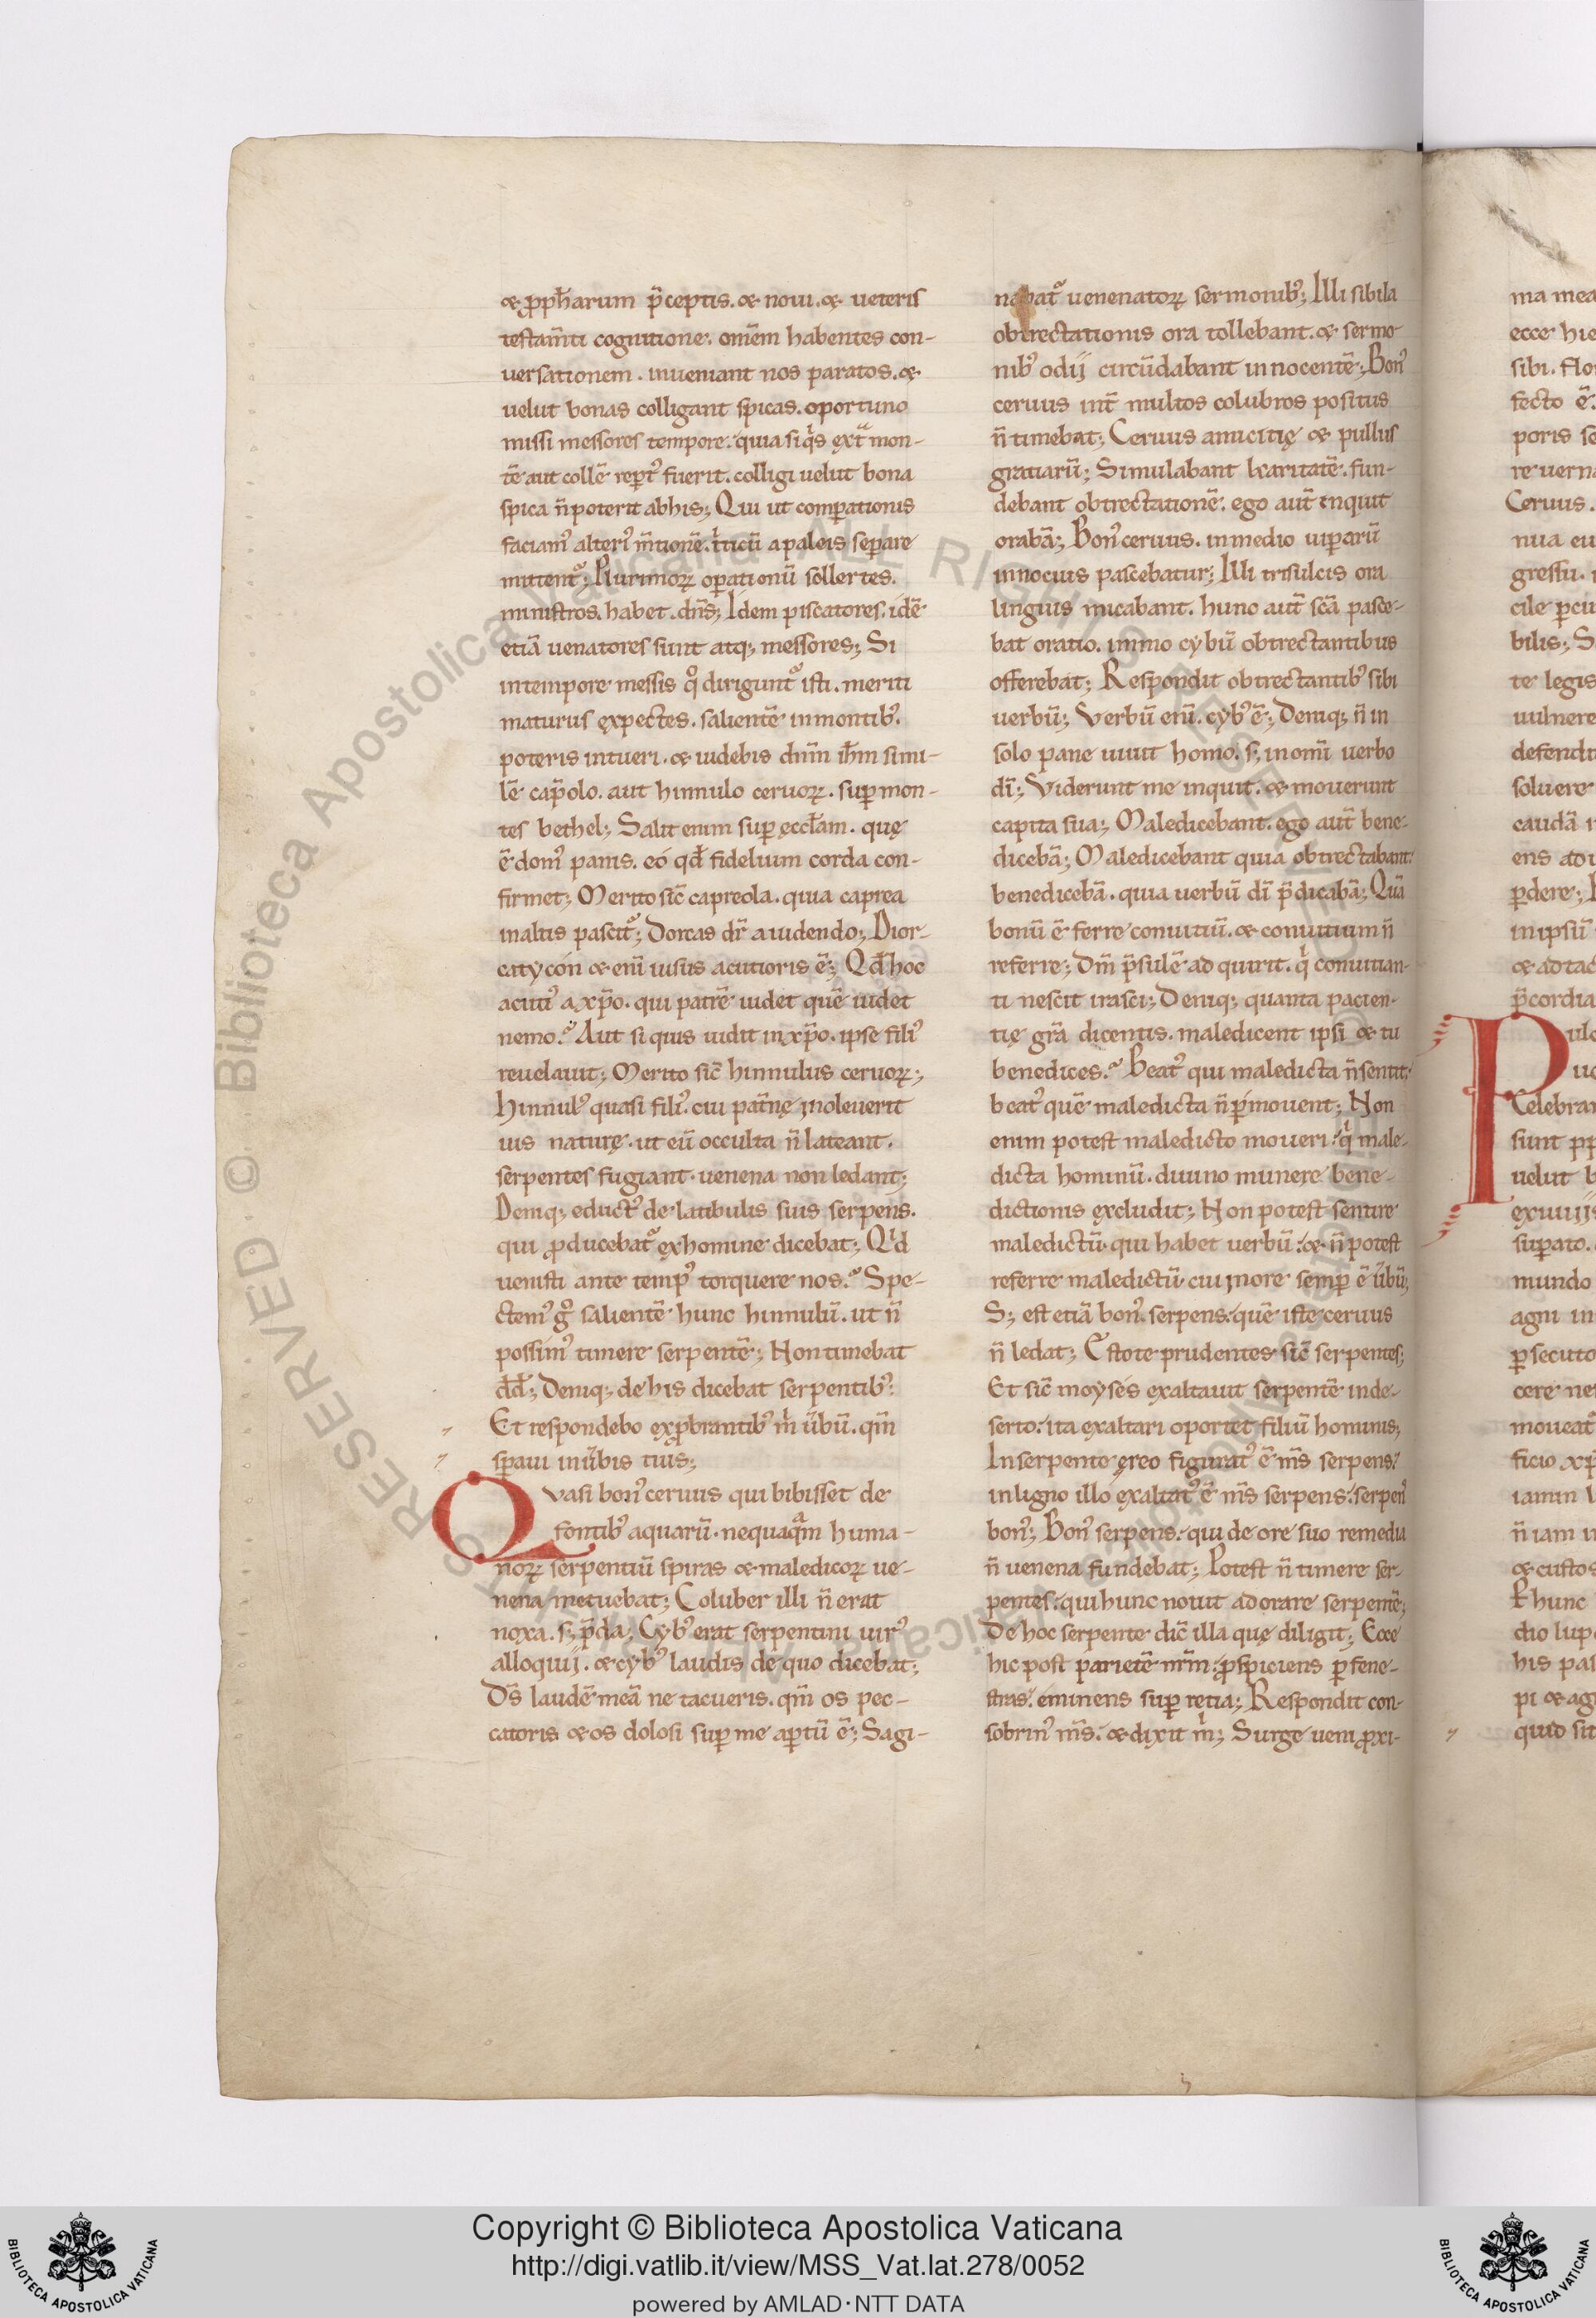 & ꝓph̄arum p̄ceptis. & noui. & ueteris
testam̄ti cognitione. om̄em habentes con-
uersationem. inueniant nos paratos. &
uelut bonas colligant spicas. oportuno
missi messores tempore. quia siqͥs ext̃ mon-
tē aut collē rep̄tꝰ fuerit. colligi uelut bona
spica n̄ poterit abhis; Qui ut comꝑationis
faciamꝰ alteriꝰ m̄tionē. tͥticū a paleis seꝑare
mittentᷣ; Plurimoꝝ oꝑationū sollertes.
ministros. habet. dn̄s; Idem piscatores. idē
etiā uenatores sunt atq; messores; Si
intempore messis qͦ diriguntᷣ isti. meriti
maturus expectes. salientē inmontibꝰ.
poteris intueri. & uidebis dnm̄ ih̄m simi-
lē cap̄olo. aut hinnulo ceruoꝝ. suꝑ mon-
tes bethel; Salit enim suꝑ ęccl̄am. quę
ē domꝰ panis. eó qđ fidelium corda con-
firmet; Merito sic̄ capreola. quia caprea
inaltis pascitᷣ; Dorcas dr̄ a uidendo; Dior-
catycón & enī uisus acutioris ē; Qđ hoc
acutiꝰ a xp̄o. qui patrē uidet quē uidet
nemo? Aut si quis uidit in xp̄o. ipse filiꝰ
reuelauit; Merito sic̄ hinnulus ceruoꝝ;
hinnulꝰ quasi filiꝰ. cui pat̄nę inoleuerit
uis naturę. ut eū occulta n̄ lateant.
serpentes fugiant. uenena non ledant;
Deniq; eductꝰ de latibulis suis serpens.
qui ꝓducebatᷣ exhomine dicebat; Qͥd
uenisti ante tempꝰ torquere nos? Spe-
ctemꝰ gͦ salientē hunc hinnulū. ut n̄
possimꝰ timere serpentē; Non timebat
dd̄; Deniq; de his dicebat serpentibꝰ:
Et respondebo exꝓbrantibꝰ mͥ ūbū. qm̄
sꝑaui in ūbis tuis;
Quasi bonꝰ ceruus qui bibisset de
fontibꝰ aquarū. nequaqᷓm huma-
noꝝ serpentiū spiras & maledicoꝝ ue-
nena metuebat; Coluber illi n̄ erat
noxa. s; p̄da; Cybꝰ erat serpentini uirꝰ
alloquij. & cybꝰ laudis de quo dicebat;
Ds̄ laudē meā ne tacueris. qm̄ os pec-
catoris & os dolosi suꝑ me aꝑtū ē; Sagi-
natᷣ uenenatoꝝ sermonibꝰ; Illi sibila
obtrectationis ora tollebant. & sermo-
nibꝰ odij circūdabant innocentē; Bonꝰ
ceruus int̄ multos colubros positus
n̄ timebat; Ceruus amicitię & pullus
gratiarū; Simulabant karitatē. fun-
debant obtrectationē. ego aut̄ inquit
orabā; Bonꝰ ceruus. inmedio uiꝑarū
innocuus pascebatur; Illi trisulcis ora
linguis micabant. hunc aut̄ scā pasce-
bat oratio. immo cybū obtrectantibus
offerebat; Respondit obtrectantibꝰ sibi
uerbū; Verbū enī. cybꝰ ē; Deniq; n̄ in
solo pane uiuit homo. s; inomī uerbo
dī; Viderunt me inquit. & mouerunt
capita sua; Maledicebant. ego aut̄ bene-
dicebā; Maledicebant quia obtrectabant.
benedicebā. quia uerbū dī p̄dicabā; Quā
bonū ē ferre conuitiū. & conuitium n̄
referre; Dm̄ p̄sulē ad quirit. qͥ conuitian-
ti nescit irasci; Deniq; quanta pacien-
tię gr̄a dicentis. maledicent ipsi & tu
benedices? Beatꝰ qui maledicta n̄ sentit;
beatꝰ quē maledicta n̄ ꝑmouent; Non
enim potest maledicto moueri. qͥ male-
dicta hominū. diuino munere bene-
dictionis excludit; Non potest sentire
maledictū. qui habet uerbū. & n̄ potest
referre maledictū. cui inore semꝑ ē ūbū;
S; est etiā bonꝰ serpens. quē iste ceruus
n̄ ledat; Estote prudentes sic̄ serpentes;
Et sic̄ moyses exaltauit serpentē inde-
serto. ita exaltari oportet filiū hominis;
Inserpente ęreo figuratꝰ ē ms̄ serpens.
in ligno illo exaltatꝰ ē ms̄ serpens. serpenꝰ
bonꝰ; Bonꝰ serpens. qui de ore suo remedia
n̄ uenena fundebat; Potest n̄ timere ser-
pentes. qui hunc nouit adorare serpentē;
De hoc serpente dic̄ illa quę diligit; Ecce
hic post parietē nr̄m. ꝓspiciens ꝑ fene-
stras. eminens suꝑ retia; Respondit con-
sobrinꝰ ms̄. & dixit mͥ; Surge ueni ꝓxi-
Copyright © Biblioteca Apostolica Vaticana
http://digi.vatlib.it/view/MSS_Vat.lat.278/0052
powered by AMLAD·NTT DATA